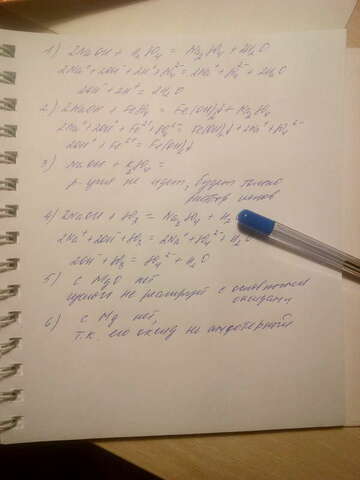 1) 2NaOH + H₂SO₄ = Na₂SO₄ + 2H₂O
2Na⁺ + 2OH⁻ + 2H⁺ + SO₄²⁻ = 2Na⁺ + SO₄²⁻ + 2H₂O
2OH⁻ + 2H⁺ = 2H₂O
2) 2NaOH + FeSO₄ = Fe(OH)₂↓ + Na₂SO₄
2Na⁺ + 2OH⁻ + Fe²⁺ + SO₄²⁻ = Fe(OH)₂↓ + 2Na⁺ + SO₄²⁻
2OH⁻ + Fe²⁺ = Fe(OH)₂↓
3) NaOH + K₂SO₄ =
р-ция не идет, будет только
раствор ионов
4) 2NaOH + SO₃ = Na₂SO₄ + H₂
2Na⁺ + 2OH⁻ + SO₃ = 2Na⁺ + SO₄²⁻ + H₂O
2OH⁻ + SO₃ = SO₄²⁻ + H₂O
5) с MgO нет
щелочь не реагирует с основными
оксидами
6) с Mg нет,
т.к. его оксид не амфотерный